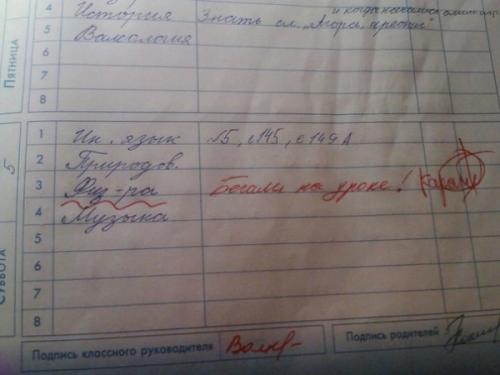 и когда
4 История Знать сл.
5 Валеология
6
7
8
ПЯТНИЦА
1 Ин. язык №5, с 145, с 149 А
2 Природов.
3 Физ-ра Бегали на уроке!
4 Музыка
5
6
7
8
5
СУББОТА
Подпись классного руководителя
Подпись родителей